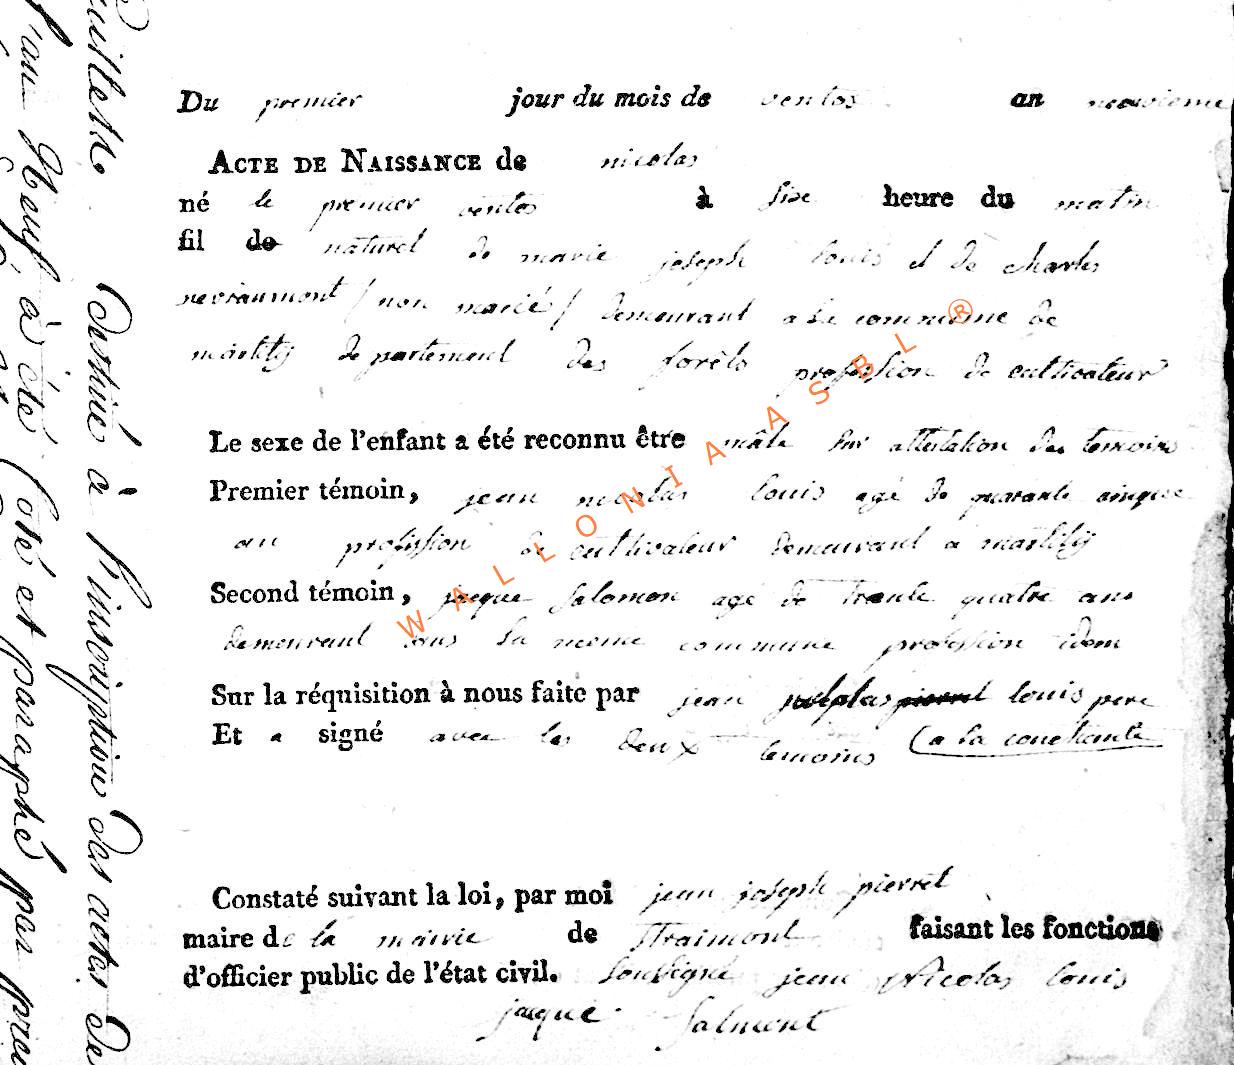 Du premier jour du mois de ventos an neuvieme
ACTE DE NAISSANCE de nicolas
né le premier ventos à sixe heure du matin
fil de naturel de marie joseph louis et de charles
nevraumont / non marié / demeurant a la commune de
martilly departement des forêts profession de cultivateur
Le sexe de l'enfant a été reconnu être mâle sur attestation des temoins
Premier témoin, jean nicolas louis agé de quarante cinque
an profession de cultivateur demeurant a martilly
Second témoin, jacque salomon agé de trente quatre ans
demeurant dans la meme commune profession idem
Sur la réquisition à nous faite par jean nicolas pierret louis pere
Et a signé avec les deux temoins (a la constante
Constaté suivant la loi, par moi jean joseph pierret
maire de la mairie de Straimont faisant les fonctions
d'officier public de l'état civil. Soussigné jean Nicolas louis
jacque Salmont
WALLONIA ASBL ®
Destiné à l'inscription des actes de
l'an Neuf à été coté et paraphé par